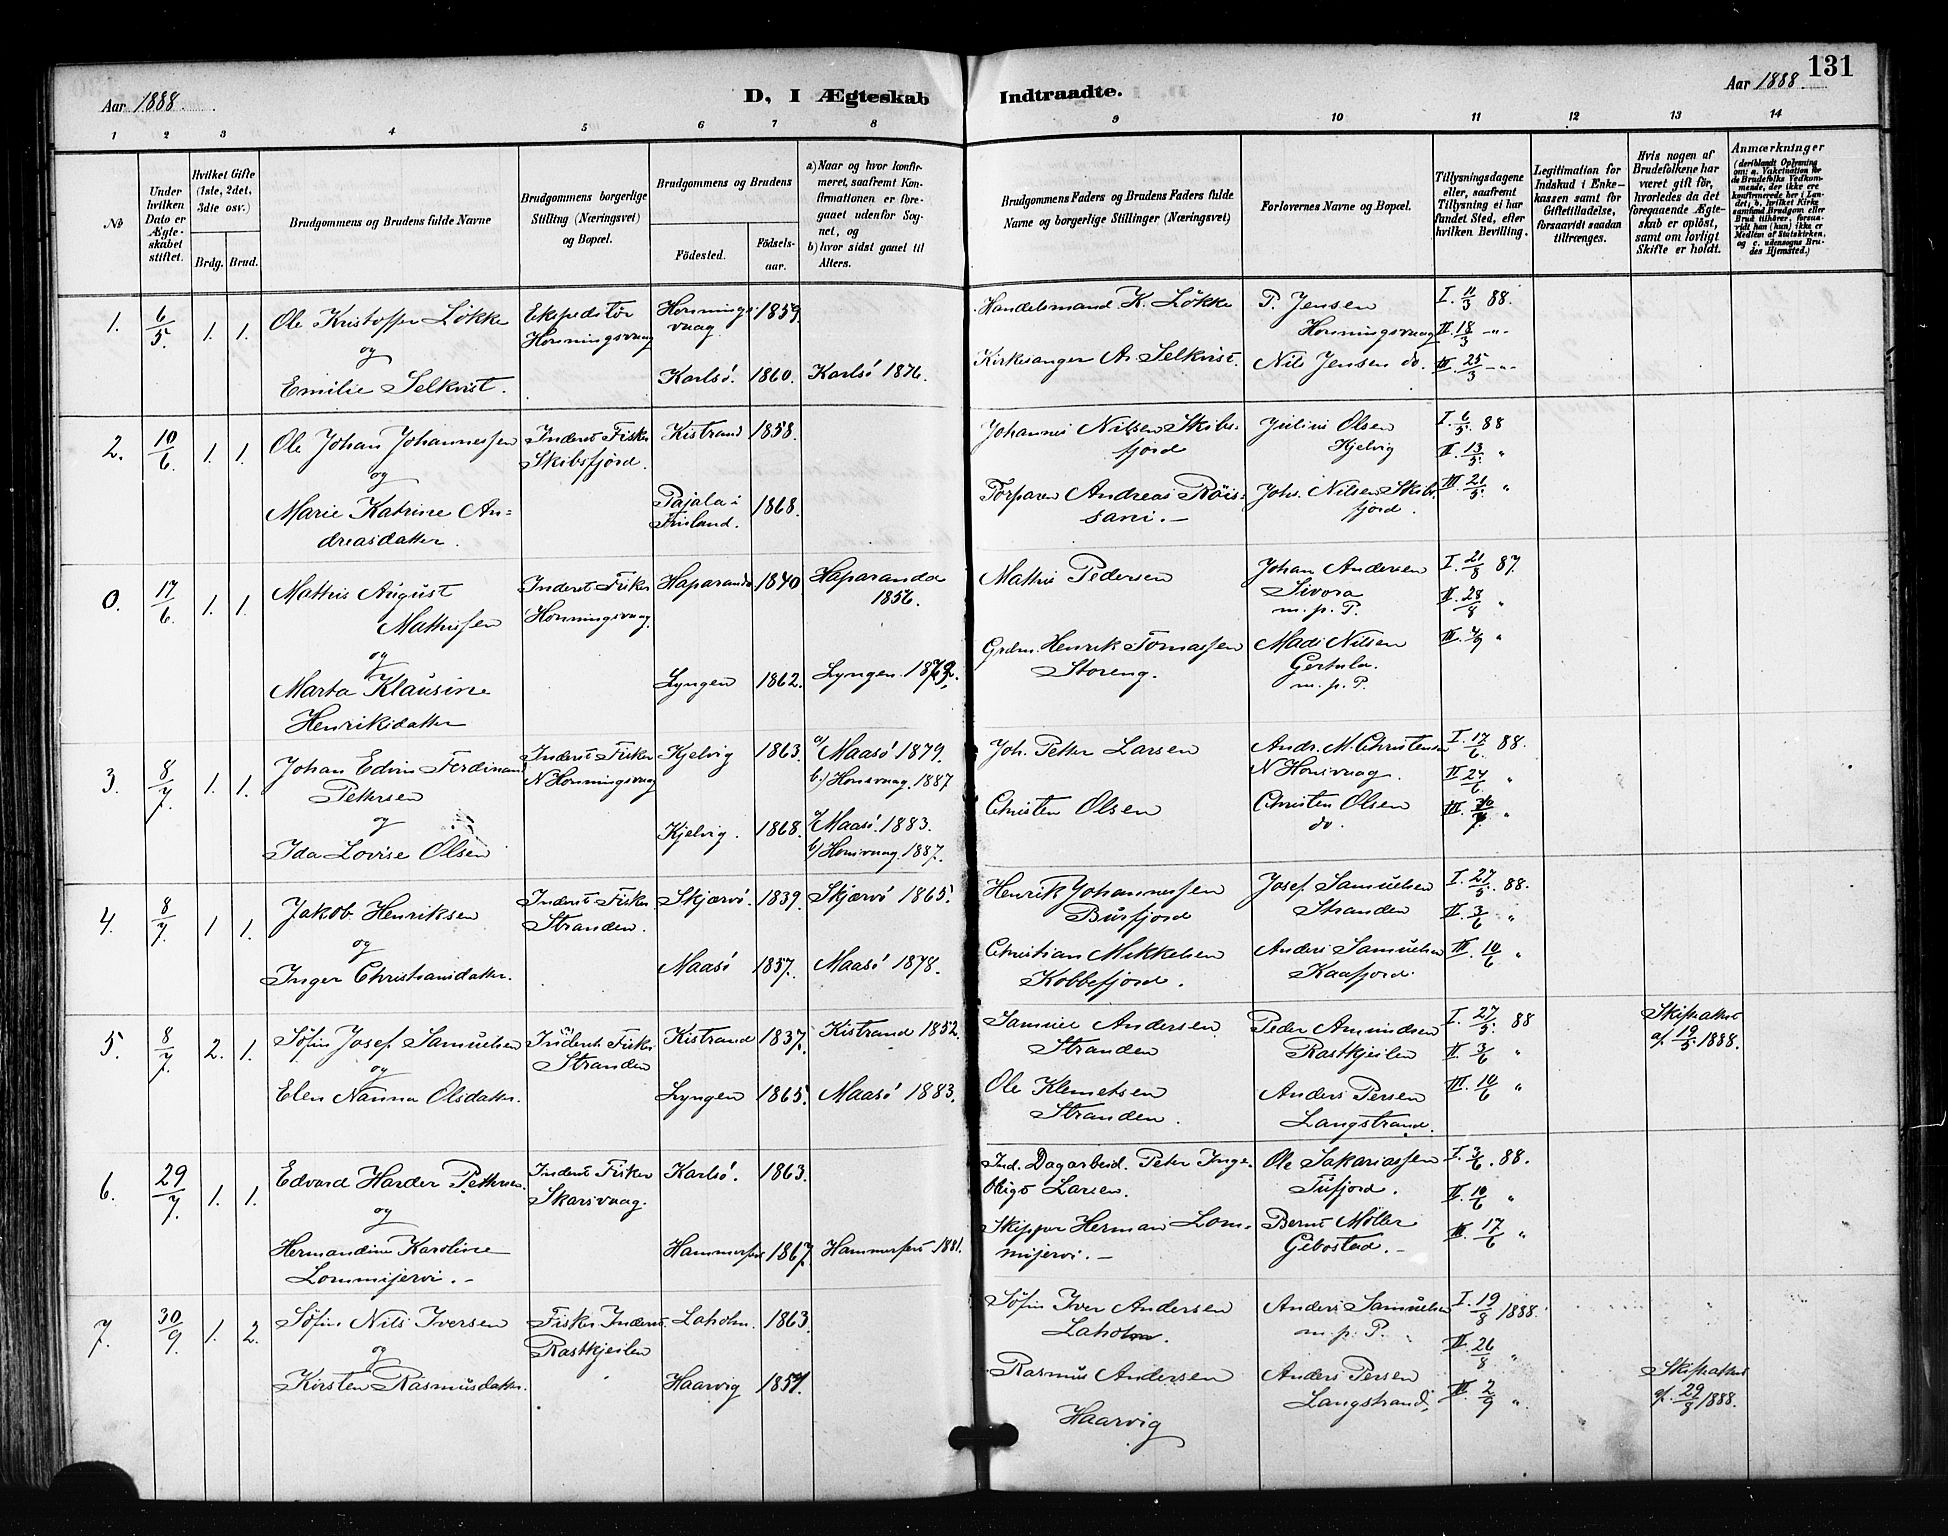 131
Aar 1888.
D, I Ægteskab Indtraadte.
Aar 1888.
1 2 3 4 5 6 7 8 9 10 11 12 13 14
No
Under hvilken Dato er Ægteskabet stiftet.
Hvilket Gifte (1ste, 2det, 3die osv.)
Brdg. Brud.
Brudgommens og Brudens fulde Navne
Brudgommens borgerlige Stilling (Næringsvei) og Bopæl.
Brudgommens og Brudens
Fødested.
Fødselsaar.
a) Naar og hvor konfirmeret, saafremt Konfirmationen er foregaaet udenfor Sognet, og
b) hvor sidst gaaet til Alters.
Brudgommens Faders og Brudens Faders fulde Navne og borgerlige Stillinger (Næringsvei)
Forlovernes Navne og Bopæl.
Tillysningsdagene eller, saafremt Tillysning ei har fundet Sted, efter hvilken Bevilling.
Legitimation for Indskud i Enkekassen samt for Giftetilladelse, forsaavidt saadan tiltrænges.
Hvis nogen af Brudefolkene har været gift før, hvorledes da det foregaaende Ægteskab er opløst, samt om lovligt Skifte er holdt.
Anmærkninger
(deriblandt Oplysning om: a. Vakcination for de Brudefolks Vedkommende, der ikke ere konfirmerede her i Landet, b. hvilket Kirkesamfund Brudgom eller Brud tilhører, forsaavidt han (hun) ikke er Medlem af Statskirken, og c. udensogns Brudes Hjemsted.)
1. 6/5 1. 1. Ole Kristoffer Løkke
og
Emilie Selkvist.
Ekspeditør
Honningsvaag
Honningsvaag 1859.
Karlsö. 1860. Karlsö 1876.
Handelsmand K. Løkke
Kirkesanger A. Selkvist.
P. Jensen
Honningsvaag
Nils Jensen do.
I. 11/3 88.
II. 18/3 "
III. 25/3 "
2. 10/6. 1. 1. Ole Johan Johannessen
og
Marie Katrine Andreasdatter.
Inderst Fisker
Skibsfjord.
Kistrand 1858.
Pajala i
Finland. 1868.
Johannes Nilsen Skibsfjord
Torparen Andreas Röissani.
Julius Olsen
Kjelvig
Johs. Nilsen Skibsfjord.
I. 6/5. 88
II. 13/5. "
III. 21/5. "
0. 17/6. 1. 1. Mathis August
Mathissen
og
Marta Klausine
Henriksdatter
Inderst Fisker
Honningsvaag.
Haparanda 1840 Haparanda
1856.
Lyngen 1862. Lyngen.
Mathis Pedersen
Grdm. Henrik Tomassen
Storeng.
Johan Andersen
Sivora
m. p. P.
Mads Nilsen
m. p. P.
I. 21/8 87.
II. 28/8 "
III. 4/9 "
3. 8/7. 1. 1. Johan Edvin Ferdinand
Pettersen
og
Ida Lovise Olsen
Inderst Fisker
N Honningsvaag
Kjelvig 1863. a/ Maasö 1879.
b.) Honsvaag. 1887
Kjelvig. 1868. a/ Maasö. 1883.
b/ Honsvaag. 1887.
Joh. Petter Larsen
Christen Olsen
Andr. M. Christensen
N Honsvaag.
Christen Olsen
do.
I. 17/6. 88.
II. 24/6 "
4. 8/7. 1 1. Jakob Henriksen
og
Inger Christiansdatter.
Inderst Fisker
Stranden.
Skjærvö. 1839. Skjærvö 1865.
Maasö 1857. Maasö 1878.
Henrik Johannessen
Burfjord
Christian Mikkelsen
Kobbefjord.
Josef Samuelsen
Stranden
Anders Samuelsen
Kaafjord.
I. 27/5. 88.
II. 3/6 "
III. 10/6 "
5. 8/7. 2. 1. Söfin Josef Samuelsen
og
Elen Nanna Olsdatter.
Inderst Fisker
Stranden
Kistrand 1837. Kistrand 1852.
Lyngen 1865. Maasö 1883.
Samuel Andersen
Stranden
Ole Klemetsen
Stranden.
Peder Amundsen
Rastkjeilen
Anders Persen
Langstrand.
I. 27/5. 88
II. 3/6 "
III. 10/6 "
Skifteattest
af. 19/5 1888.
6. 29/7. 1. 1. Edvard Harder Pettersen.
og
Hermandine Karoline
Lommijervi.
Inderst Fisker
Skarsvaag.
Karlsö. 1863.
Hammerfest 1867. Hammerfest 1881.
Ind. Dagarbeid. Peter
Larsen.
Skipper Herman Lommijervi.
Ole Sakariassen
Tufjord.
Bernt Möller
Gibostad.
I. 3/6. 88.
II. 10/6 "
III. 17/6 "
7. 30/9. 1. 2. Söfin Nils Iversen
og
Kirsten Rasmusdatter.
Fisker Inderst.
Rastkjeilen
Laholm. 1863.
Haarvig
Söfin Iver Andersen
Laholm.
Rasmus Andersen
Haarvig
Anders Samuelsen
m. p. P.
Anders Persen
Langstrand.
I. 19/8 1888.
II. 26/8 "
III. 2/9 "
Skifteattest
af. 29/8 1888.